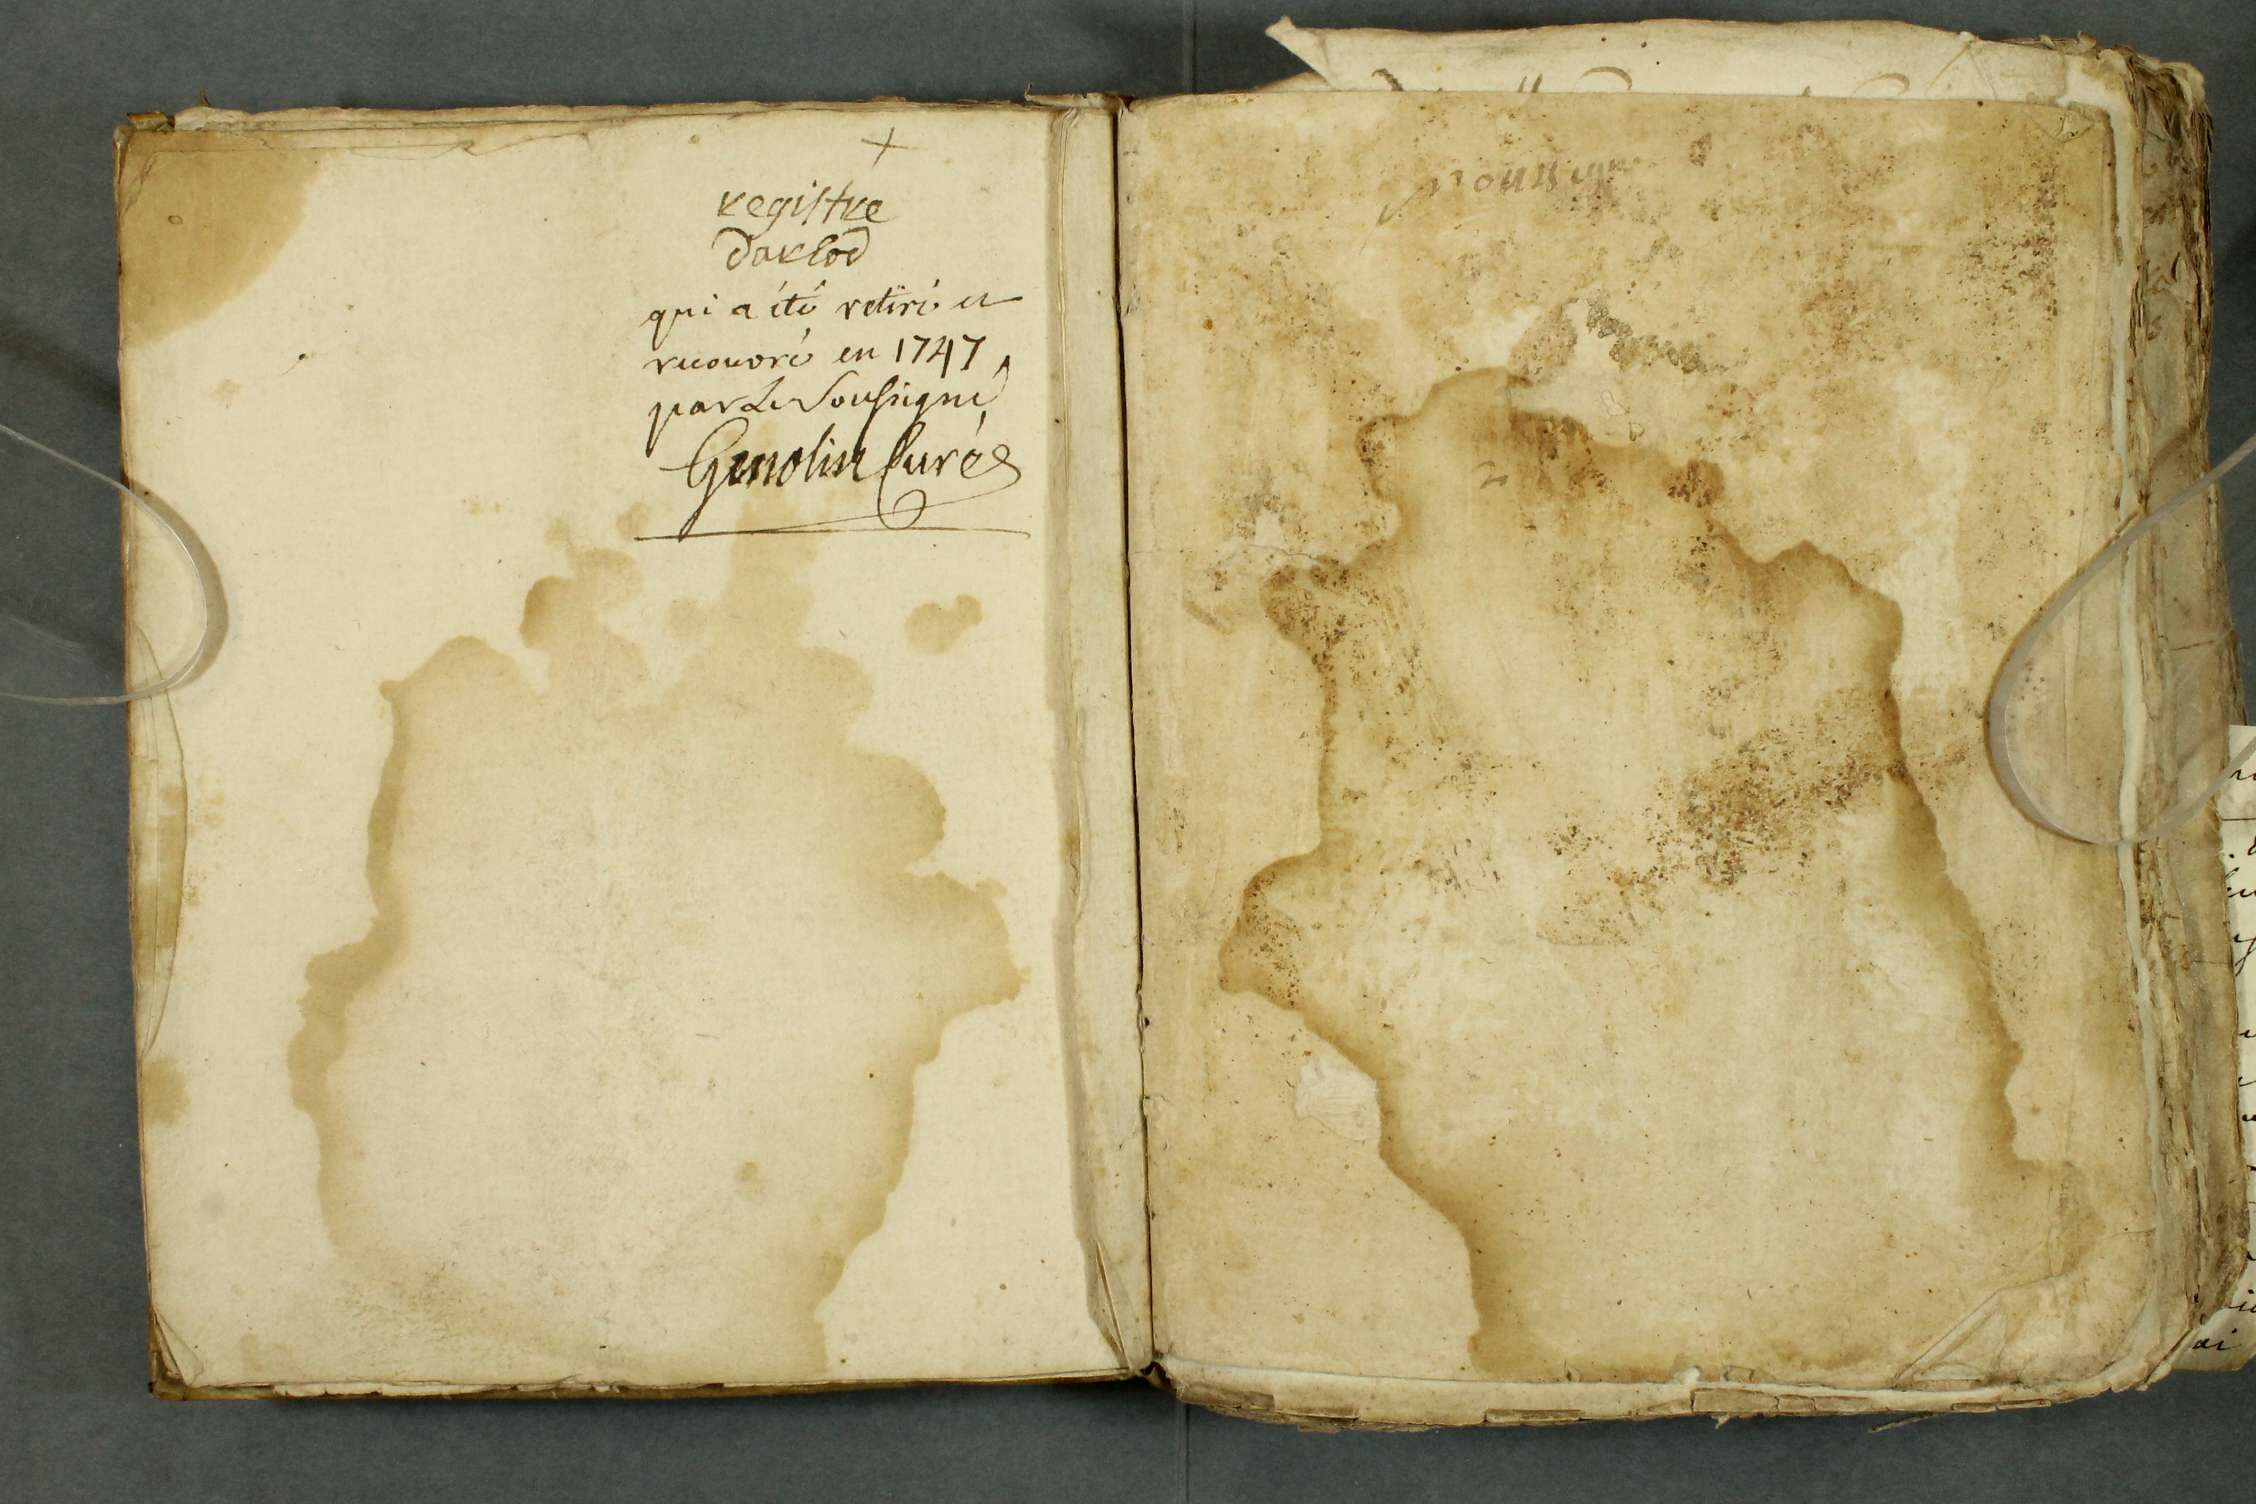 +
registre
darlod
qui a été retiré et
recouvré en 1747
par Le Soussigné
Genolin Curé